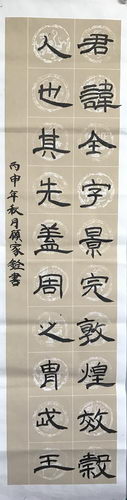 君諱全字景完敦煌效穀
人也其先蓋周之胄武王
丙申年秋月顾家銓書